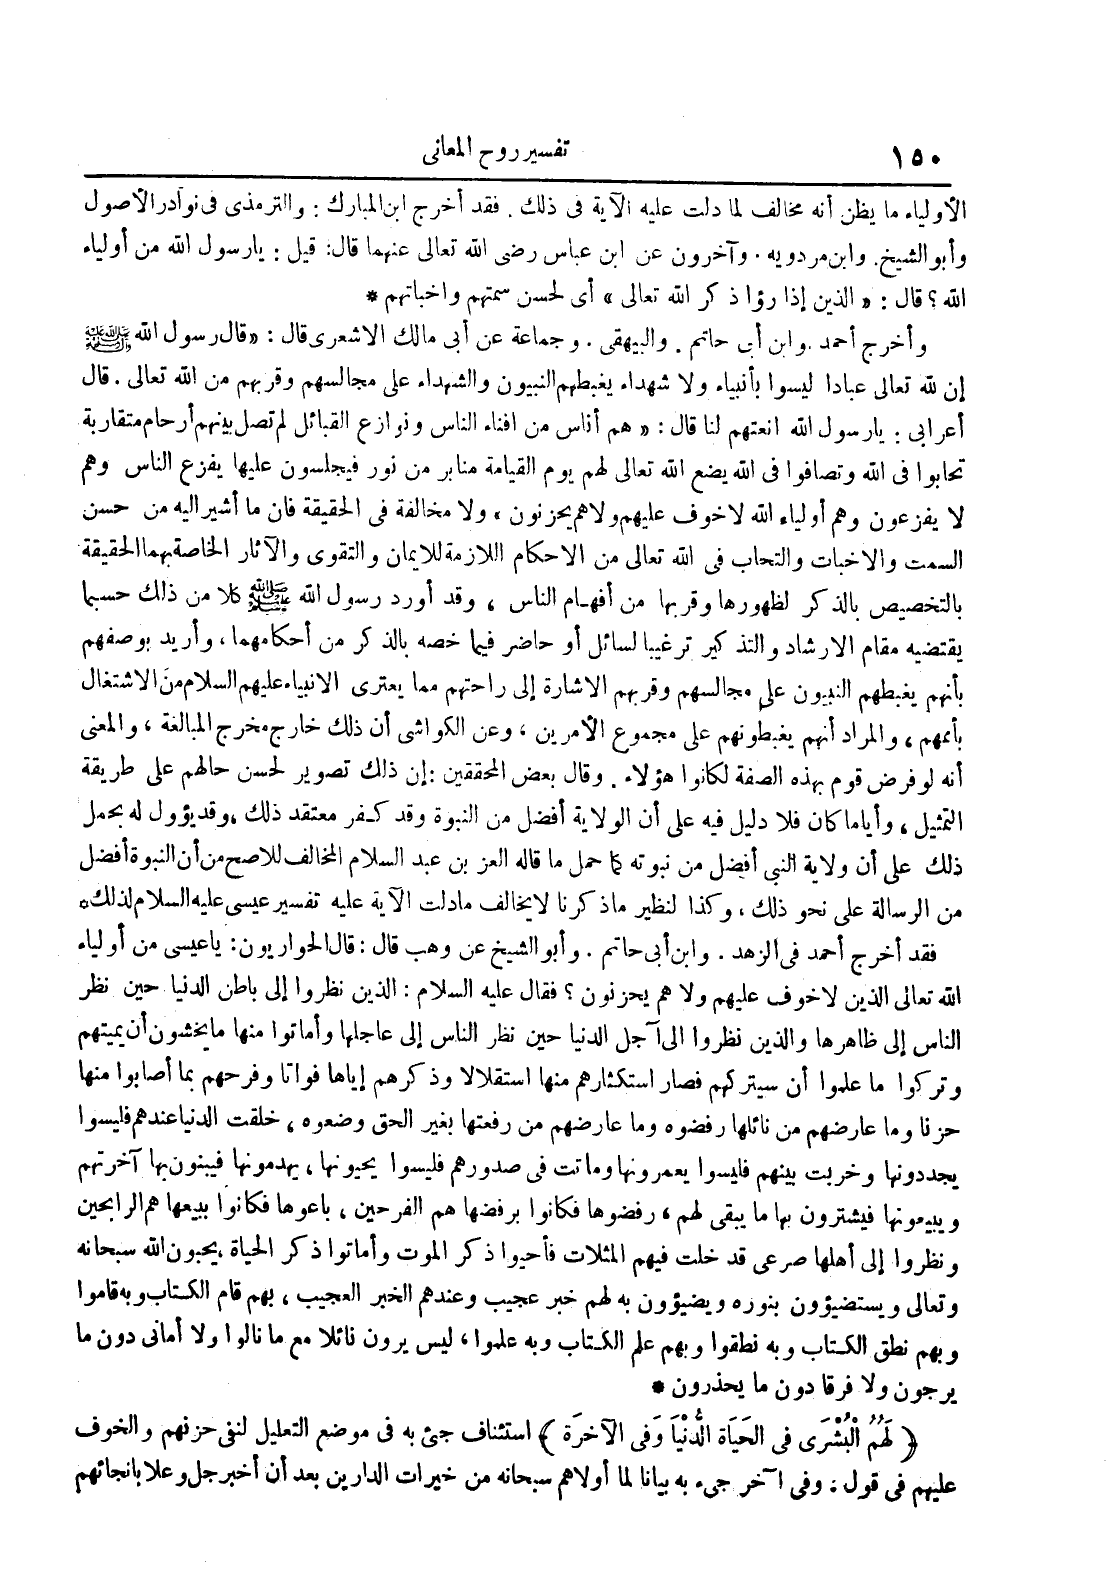 ١٥٠ تفسير روح المعانى
الأولياء ما يظن أنه مخالف لما دلت عليه الآية فى ذلك . فقد أخرج ابن المبارك : والترمذى فى نوادر الأصول
وأبو الشيخ. وابن مردويه . وآخرون عن ابن عباس رضى الله تعالى عنهما قال: قيل : يارسول الله من أولياء
الله ؟ قال : « الذين إذا رؤا ذكر الله تعالى » أى لحسن سمتهم واخباتهم *
وأخرج أحمد . وابن أبى حاتم . والبيهقى . وجماعة عن أبى مالك الاشعرى قال : «قال رسول الله ﷺ
إن لله تعالى عبادا ليسوا بأنبياء ولا شهداء يغبطهم النبيون والشهداء على مجالسهم وقربهم من الله تعالى . قال
أعرابى : يارسول الله انعتهم لنا قال : « هم أناس من افناء الناس ونوازع القبائل لم تصل بينهم أرحام متقاربة
تحابوا فى الله وتصافوا فى الله يضع الله تعالى لهم يوم القيامة منابر من نور فيجلسون عليها يفزع الناس وهم
لا يفزعون وهم أولياء الله لاخوف عليهم ولاهم يحزنون ، ولا مخالفة فى الحقيقة فان ما أشير اليه من حسن
السمت والاخبات والتحاب فى الله تعالى من الاحكام اللازمة للايمان والتقوى والآثار الخاصة بهما الحقيقة
بالتخصيص بالذكر لظهورها وقربها من أفهام الناس ، وقد أورد رسول الله ﷺ كلا من ذلك حسبما
يقتضيه مقام الارشاد والتذكير ترغيبا لسائل أو حاضر فيما خصه بالذكر من أحكامهما ، وأريد بوصفهم
بأنهم يغبطهم النبيون على مجالسهم وقربهم الاشارة إلى راحتهم مما يعترى الانبياء عليهم السلام من الاشتغال
بأممهم ، والمراد أنهم يغبطونهم على مجموع الأمرين ، وعن الكواشى أن ذلك خارج مخرج المبالغة ، والمعنى
أنه لو فرض قوم بهذه الصفة لكانوا هؤلاء . وقال بعض المحققين : إن ذلك تصوير لحسن حالهم على طريقة
التمثيل ، وأياما كان فلا دليل فيه على أن الولاية أفضل من النبوة وقد كفر معتقد ذلك ،وقد يؤول له بحمل
ذلك على أن ولاية النبى أفضل من نبوته كما حمل ما قاله العز بن عبد السلام المخالف للاصح من أن النبوة أفضل
من الرسالة على نحو ذلك ، وكذا لنظير ماذكرنا لايخالف مادلت الآية عليه تفسير عيسى عليه السلام لذلك*
فقد أخرج أحمد فى الزهد . وابن أبى حاتم . وأبو الشيخ عن وهب قال : قال الحواريون: ياعيسى من أولياء
الله تعالى الذين لاخوف عليهم ولا هم يحزنون ؟ فقال عليه السلام : الذين نظروا إلى باطن الدنيا حين نظر
الناس إلى ظاهرها والذين نظروا الى آجل الدنيا حين نظر الناس إلى عاجلها وأماتوا منها مايخشون أن يميتهم
وتركوا ما علموا أن سيتركهم فصار استكثارهم منها استقلالا وذكرهم إياها فواتا وفرحهم بما أصابوا منها
حزنا وما عارضهم من نائلها رفضوه وما عارضهم من رفعتها بغير الحق وضعوه ، خلقت الدنيا عندهم فليسوا
يجددونها وخربت بينهم فليسوا يعمرونها وماتت فى صدورهم فليسوا يحيونها ، يهدمونها فيبنون بها آخرتهم
ويبيعونها فيشترون بها ما يبقى لهم ، رفضوها فكانوا برفضها هم الفرحين ، باعوها فكانوا ببيعها هم الرابحين
ونظروا إلى أهلها صرعى قد خلت فيهم المثلات فأحيوا ذكر الموت وأماتوا ذكر الحياة ،يحبون الله سبحانه
وتعالى ويستضيؤون بنوره ويضيؤون به لهم خبر عجيب وعندهم الخبر العجيب ، بهم قام الكتاب وبه قاموا
وبهم نطق الكتاب وبه نطقوا وبهم علم الكتاب وبه علموا ، ليس يرون نائلا مع ما نالوا ولا أمانى دون ما
يرجون ولا فرقا دون ما يحذرون *
﴿ لَهُمُ الْبُشْرَى فى الحَيَاة الدُّنْيَا وَفى الآخرَة ﴾ استئناف جىء به فى موضع التعليل لنفى حزنهم والخوف
عليهم فى قول : وفى آخر جىء به بيانا لما أولاهم سبحانه من خيرات الدارين بعد أن أخبر جل وعلا بانجائهم